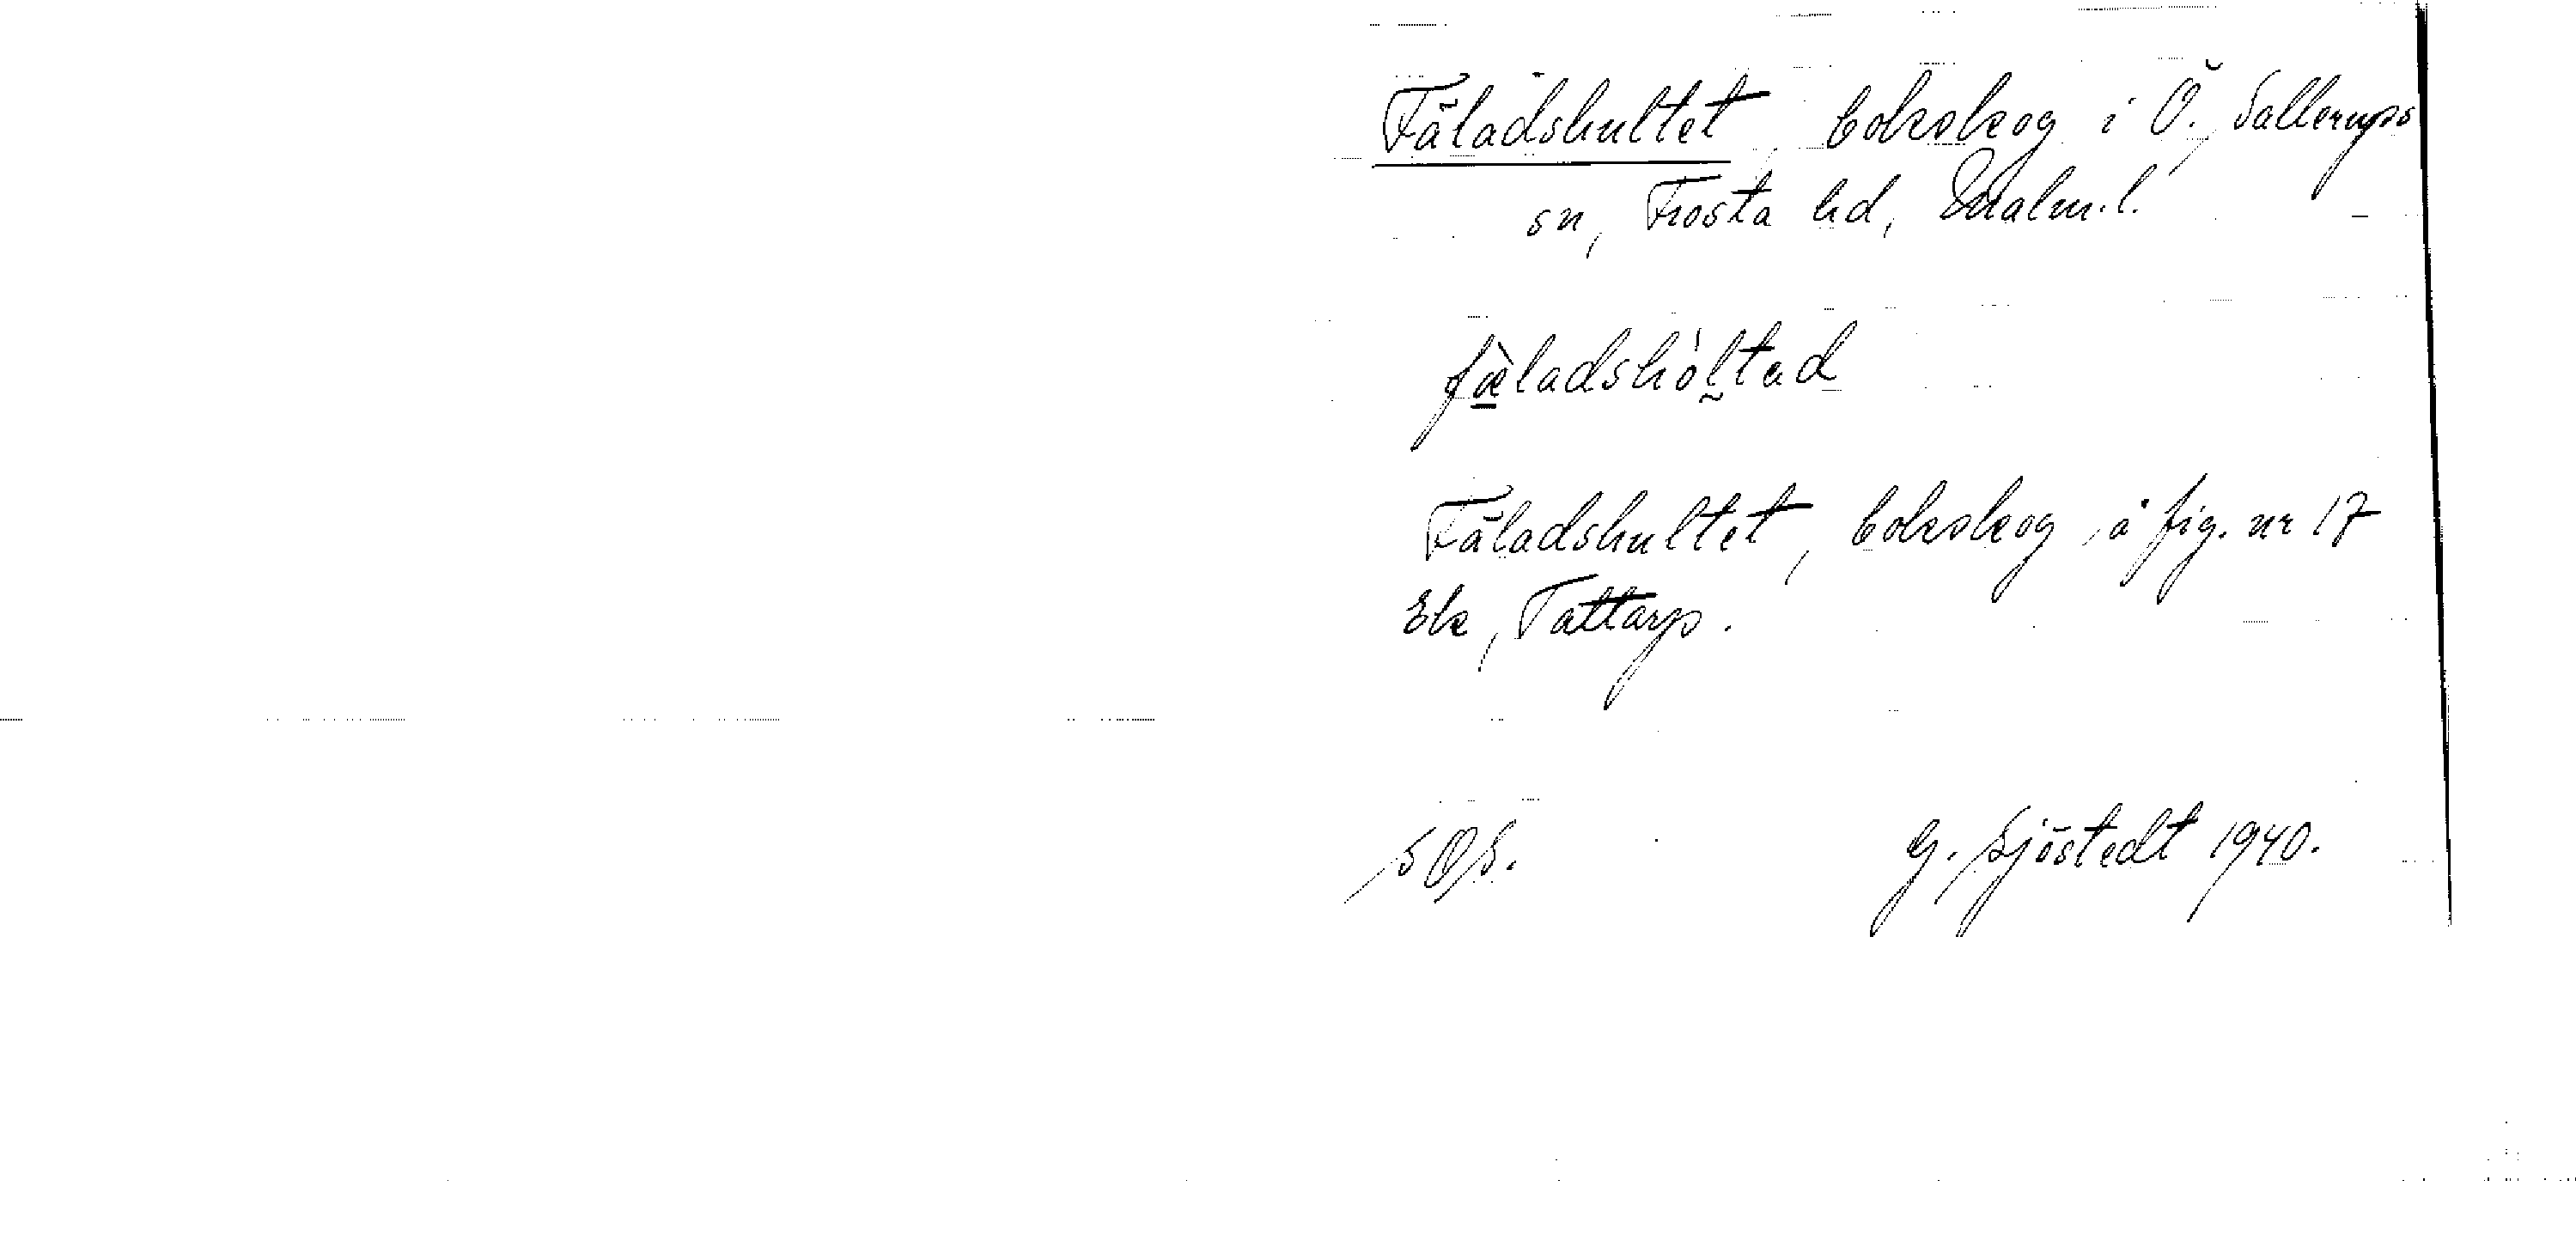 Fäladshultet, bokskog i Ö. Sallerups
sn, Frosta hd, Malm. l.
fæ̀ladshól̰tad
Fäladshultet, bokskog, å fig. nr 17
Ek, Tattarp.
SOS. G. Sjöstedt 1940.